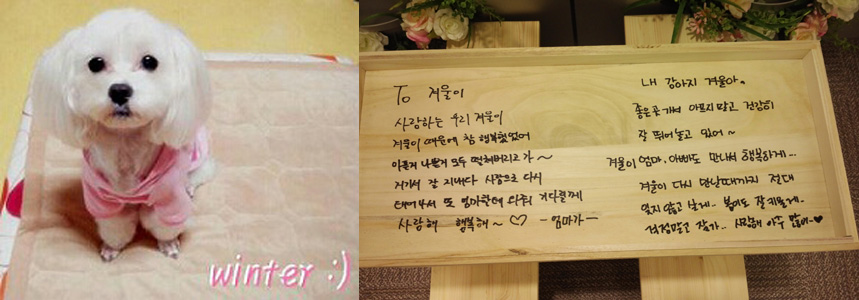 winter :)
To 겨울이
사랑하는 우리 겨울이
겨울이 때문에 참 행복했었어
아픈거 나쁜거 모두 떨쳐버리고 가~
거기서 잘 지내다 사람으로 다시
태어나서 또 엄마한테 와줘 기다릴께
사랑해 행복해~ ♡ -엄마가-
내 강아지 겨울아.
좋은곳 가서 아프지 말고 건강히
잘 뛰어놀고 있어~
겨울이 엄마, 아빠도 만나서 행복하게...
겨울이 다시 만날때까지 절대
잊지 않고 살게.. 봄이도 잘 키울게..
걱정말고 잘가.. 사랑해 아주 많이~♥